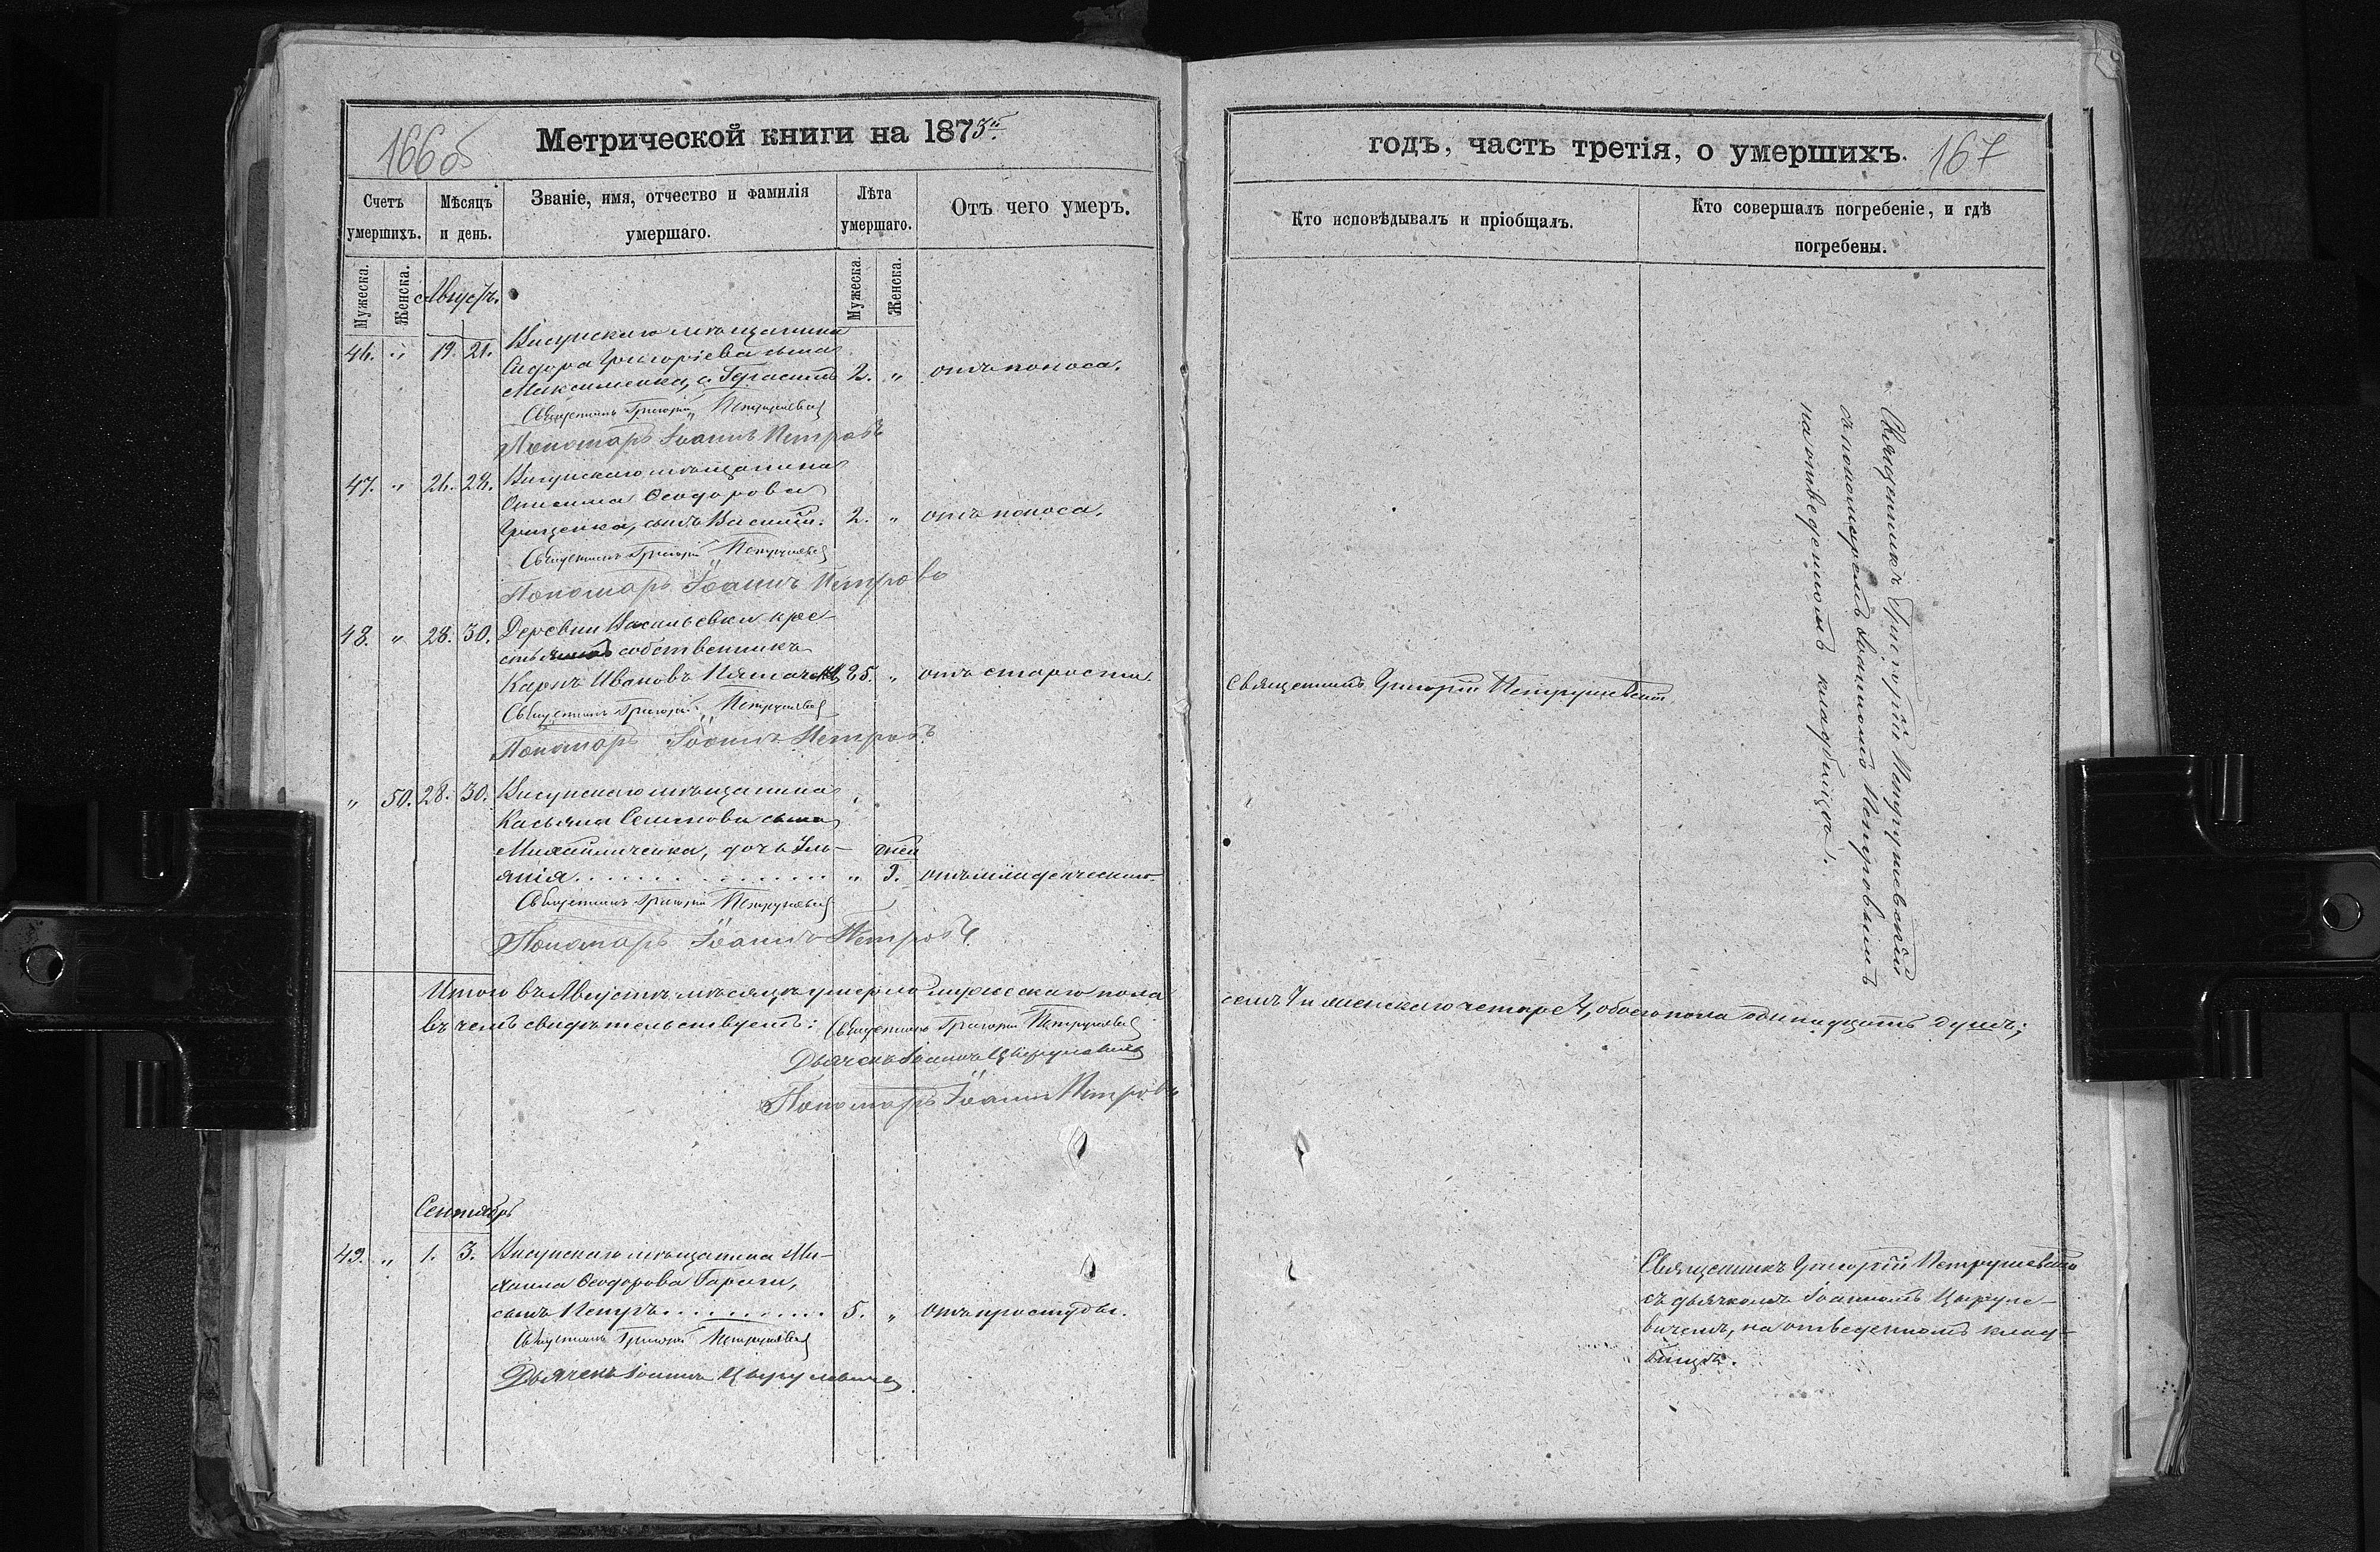 166об
Метрической книги на 1875й
Счетъ умершихъ.
Мѣсяцъ и день.
Званіе, имя, отчество и фамилія умершаго.
Лѣта умершаго.
Отъ чего умеръ.
Мужеска.
Женска.
Августъ.
Мужеска.
Женска.
46. „ 19. 21. Висунскаго мѣщанина
Сидора Григоріева сына
Максименка, с. Герасимъ 2. „ отъ поноса.
Священникъ Григорій Петрушевскій
Пономарь Іоаннъ Петровъ
47. „ 26. 28. Висунскаго мѣщанина
Онисима Ѳеодорова
Грищенка, сынъ Василій. 2. „ отъ поноса.
Священникъ Григорій Петрушевскій
Пономарь Іоаннъ Петровъ
48. „ 28. 30. Деревни Васильевки кре-
стьянинъ собственникъ
Карпъ Ивановъ 85. „ отъ старости.
Священникъ Григорій Петрушевскій
Пономарь Іоаннъ Петровъ
„ 50. 28. 30. Висунскаго мѣщанина
Касьяна Семенова сына
Михайличенка, дочь Іулі- дней
анія . . . . . . . . . . . . „ 9. отъ младенческаго.
Священникъ Григорій Петрушевскій
Пономарь Іоаннъ Петровъ
Итого въ Августѣ мѣсяцѣ умерло мужескаго пола
въ чемъ свидѣтельствуемъ: Священникъ Григорій Петрушевскій
Дьячекъ Іоаннъ Цыруле­вичъ
Пономарь Іоаннъ Петровъ
Сентябрь
49. „ 1. 3. Висунскаго мѣщанина Ми-
хаила Ѳеодорова Гараги,
сынъ Петръ . . . . . . . . . . 5. „ отъ простуды.
Священникъ Григорій Петрушевскій
Дьячекъ Іоаннъ Цырулевичъ
годъ, часть третія, о умершихъ.
167
Кто исповѣдывалъ и пріобщалъ.
Кто совершалъ погребеніе, и гдѣ погребены.
Священникъ Григорій Петрушевскій
съ пономаремъ Іоанномъ Петровымъ
на отведенномъ кладбищѣ.
Священникъ Григорій Петрушевскій
семь 7 и женскаго четыре 4, обоего пола одинадцать душъ;
Священникъ Григорій Петрушевскій
съ дьячкомъ Іоанномъ Цыруле-
вичемъ, на отведенномъ клад-
бищѣ.